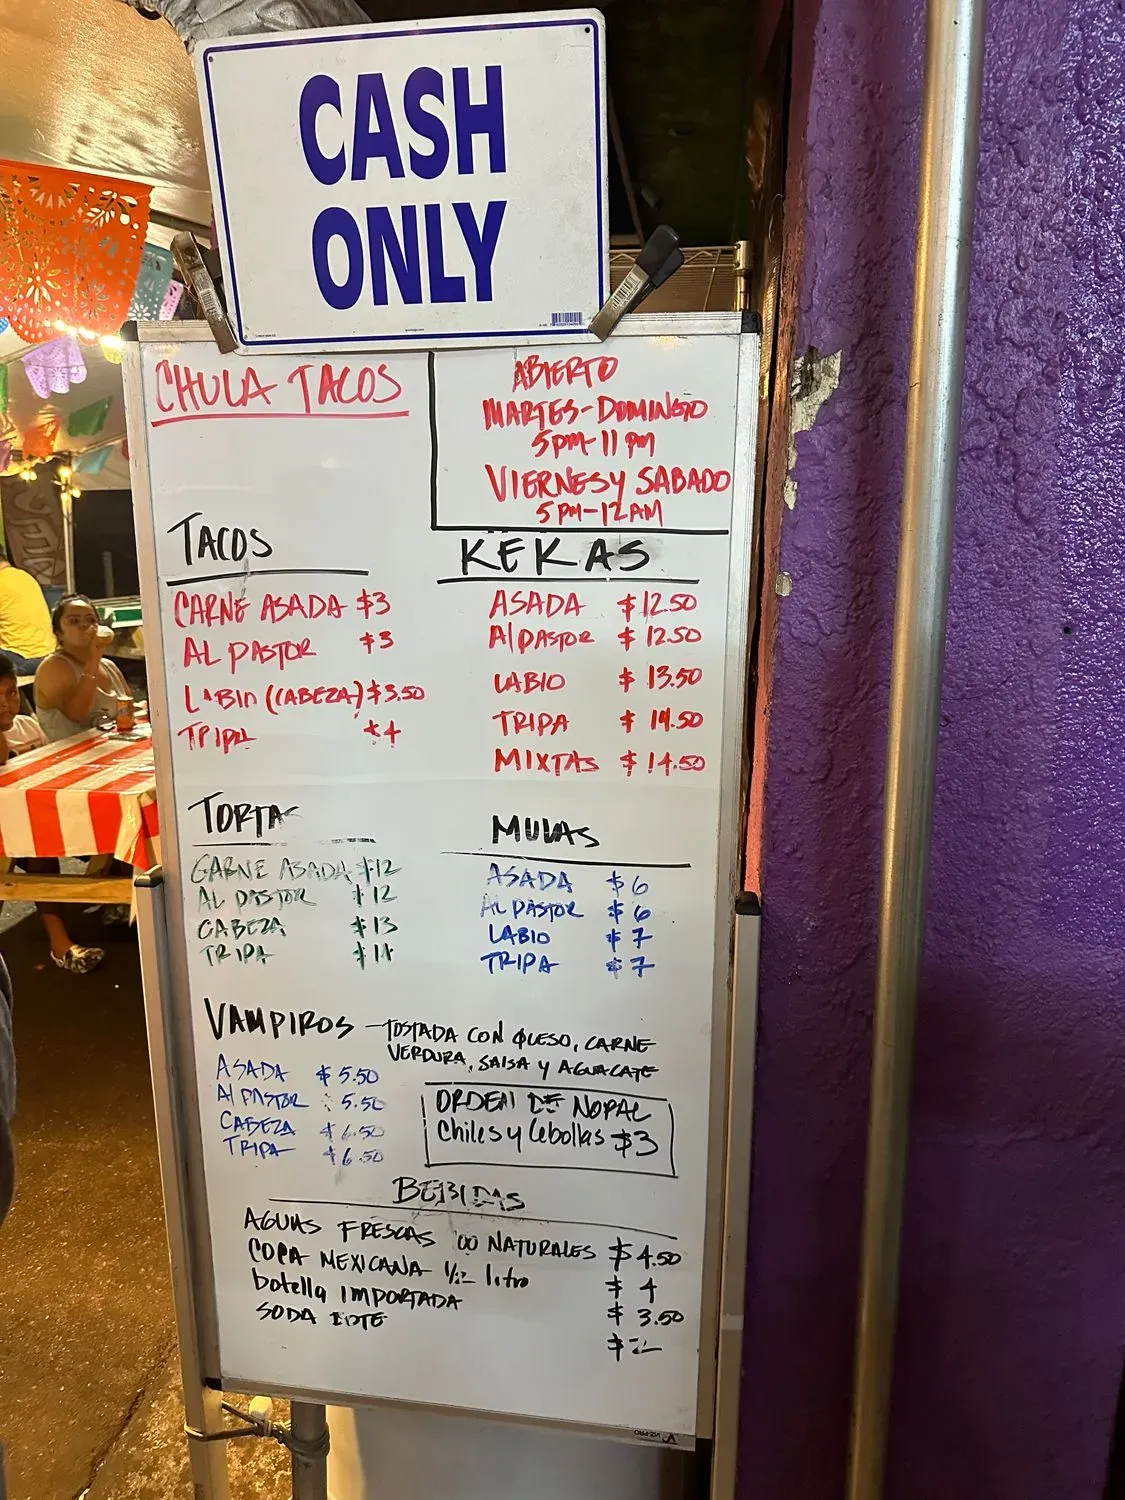 CASH
ONLY
CHULA TACOS
ABIERTO
MARTES-DOMINGO
5PM-11PM
VIERNES Y SABADO
5PM-12AM
TACOS
CARNE ASADA $3
AL PASTOR $3
LABIO (CABEZA) $3.50
TRIPA $4
KEKAS
ASADA $12.50
Al PASTOR $12.50
LABIO $13.50
TRIPA $14.50
MIXTAS $14.50
TORTAS
CARNE ASADA $12
AL PASTOR $12
CABEZA $13
TRIPA $14
MULAS
ASADA $6
AL PASTOR $6
LABIO $7
TRIPA $7
VAMPIROS - TOSTADA CON QUESO, CARNE
VERDURA, SALSA Y AGUACATE
ASADA $5.50
Al PASTOR $5.50
CABEZA $6.50
TRIPA $6.50
ORDEN DE NOPAL
Chiles y Cebollas $3
BEBIDAS
AGUAS FRESCAS NATURALES $4.50
COCA MEXICANA 1/2 litro $4
botella IMPORTADA $3.50
SODA BOTE $2
VIZ-PRO